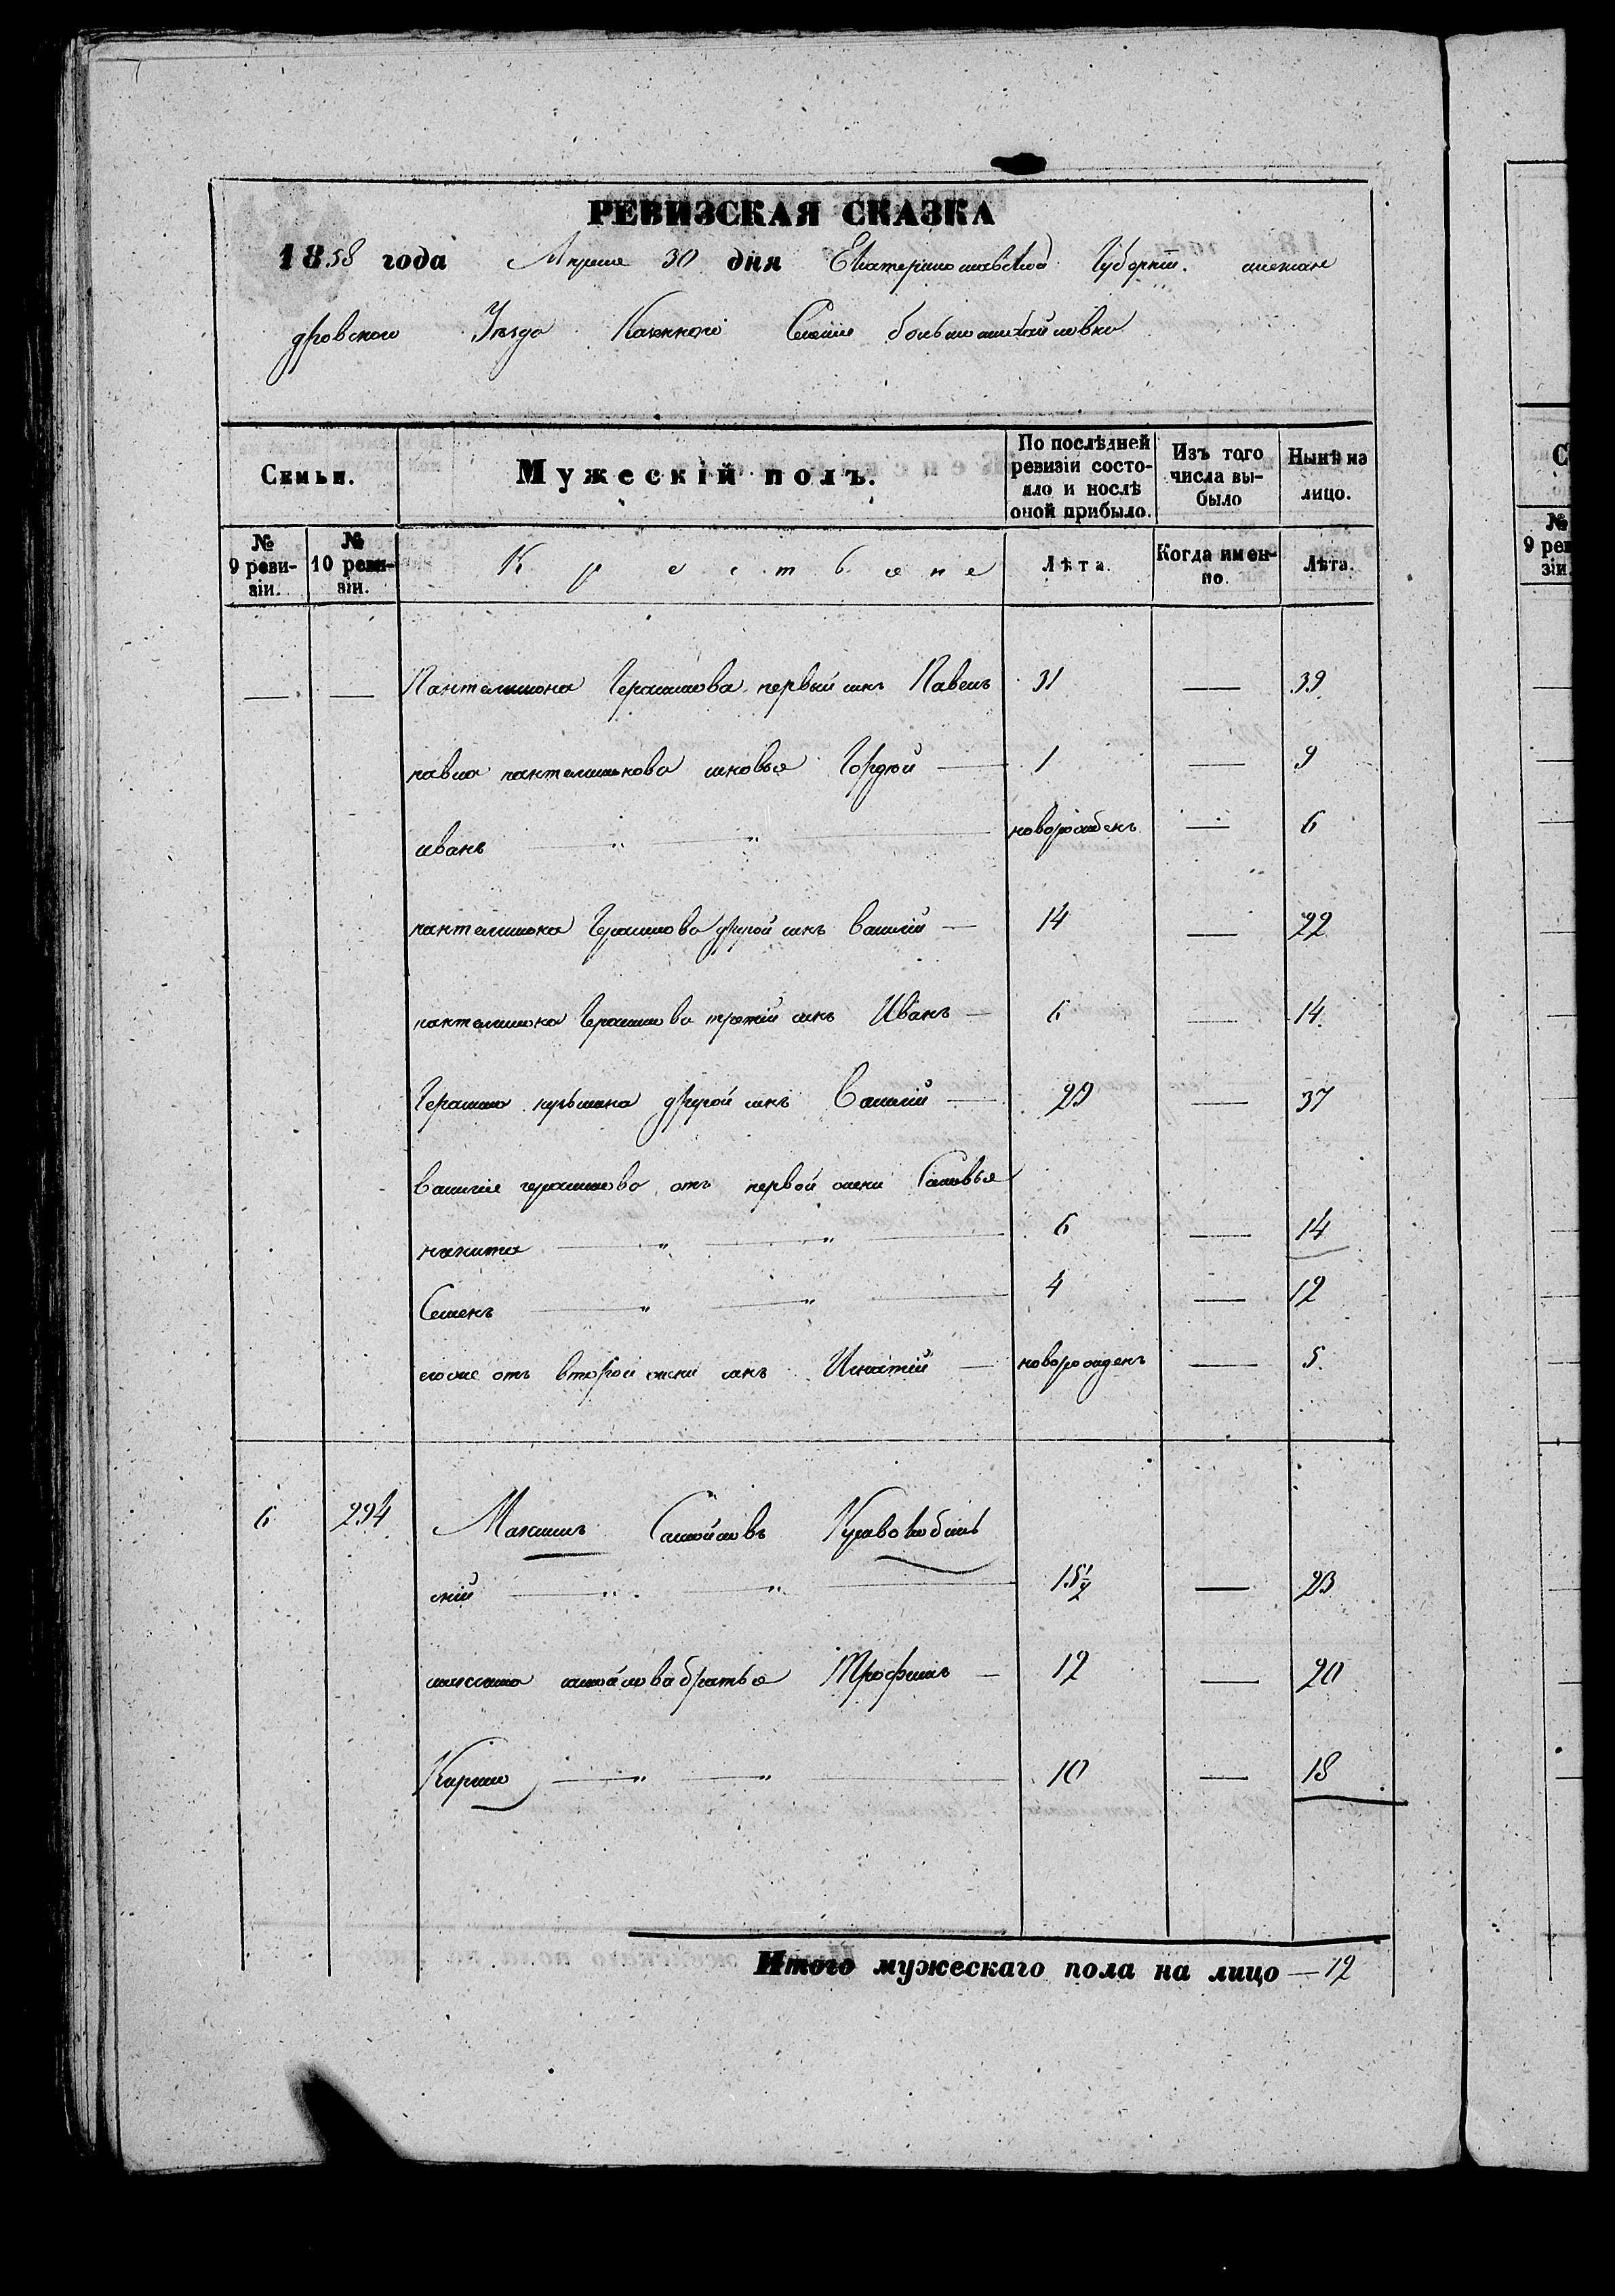 РЕВИЗСКАЯ СКАЗКА
1858 года Апреля 30 дня Екатеринославской Губерніи. алексан
дровского Уезда Казенного Селенія большомихайловка
Семьи. Мужескій полъ. По послѣдней ревизіи состояло и послѣ оной прибыло. Изъ того числа выбыло Нынѣ на лицо.
№ 9 ревизіи. № 10 ревизіи. Крестьяне Лѣта. Когда именно. Лѣта.
— — Пантелимона Герасимова первый синъ Павелъ 31 — 39
павла пантелимонова синовья Гордѣй — 1 — 9
иванъ — " — " — новорожденъ — 6
пантелимона Герасимова другой синъ василій — 14 — 22
пантелимона Герасимова третий синъ Иванъ — 6 — 14
Герасима другой синъ Василий — 29 — 37
василия герасимова отъ первой жены Синовья
никита — " — " — 6 — 14
Семенъ — " — " — 4 — 12
егоже отъ второй жени синъ Игнатий — новорожденъ — 5
6 294 Максимъ Самойловъ
скій — " — " — 15½ — 23
максима самойлова братья Трофимъ — 12 — 20
— " — " — 10 — 18
Итого мужескаго пола на лицо — 12
С
№
9 реви
зіи